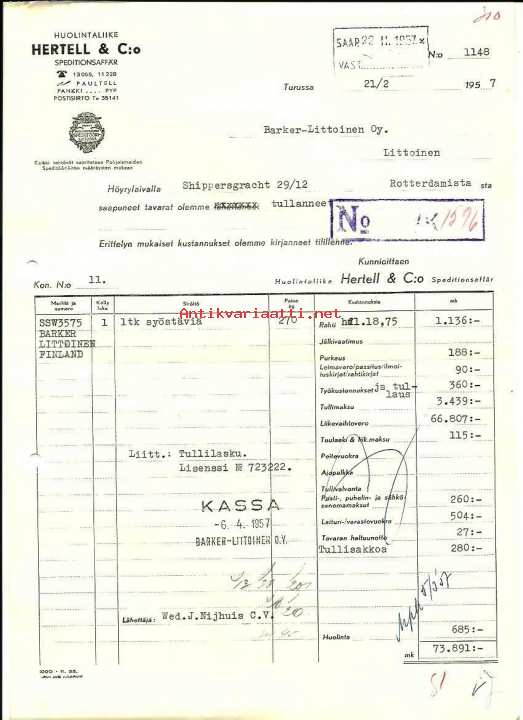 HUOLINTALIIKE
HERTELL & C:o
SPEDITIONSAFFÄR
☎ 13055, 11228
PAULTELL
PANKKI .... PYP
POSTISIIRTO Tu 35141
SAAP. 22 11. 1957
VAST.
N:o 1148
Turussa 21/2 1957
Barker-Littoinen Oy.
Littoinen
Höyrylaivalla Shippersgracht 29/12 Rotterdamista sta
saapuneet tavarat olemme tullanneet
No
Erittelyn mukaiset kustannukset olemme kirjanneet tilillenne.
Kunnioittaen
Kon. N:o 11. Huolintaliike Hertell & C:o Speditionsaffär
Merkki ja numero Kolly luku Sisältö Paino kg Kustannuksia mk
SSW3575 1 ltk syöstäviä 270 Rahti hfl.18,75 1.136:-
Antikvariaatti.net
BARKER
LITTOINEN
FINLAND
Jälkivaatimus
Purkaus 188:-
Leimavero/passitus/ilmoituskirjat/rahtikirjat 90:-
Työkustannukset ja tullaus 360:-
Tullimaksu 3.439:-
Liikevaihtovero 66.807:-
Tuulaaki & lik.maksu 115:-
Peitevuokra
Ajopalkka
Tullivalvonta
Posti-, puhelin- ja sähkösanomamaksut 260:-
Laituri-/varastovuokra 504:-
Tavaran haltuunotto 27:-
Tullisakkoa 280:-
Liitt.: Tullilasku.
Lisenssi № 723222.
KASSA
-6. 4. 1957
BARKER-LITTOINEN O.Y.
Lähettäjä: Wed.J.Nijhuis C.V.
Huolinta 685:-
mk 73.891:-